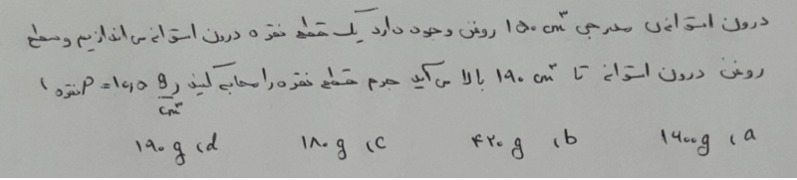 درون استوانه‌ی مدرجی ۱۵۰ cm³ روغن وجود دارد یک قطعه نقره درون استوانه می‌اندازیم و سطح
روغن درون استوانه تا ۱۹۰ cm³ بالا می‌آید جرم قطعه نقره را محاسبه کنید (ρنقره = ۱۰٫۵ g/cm³)
a) ۱۶۰۰g b) ۴۲۰g c) ۱۸۰g d) ۱۹۰g